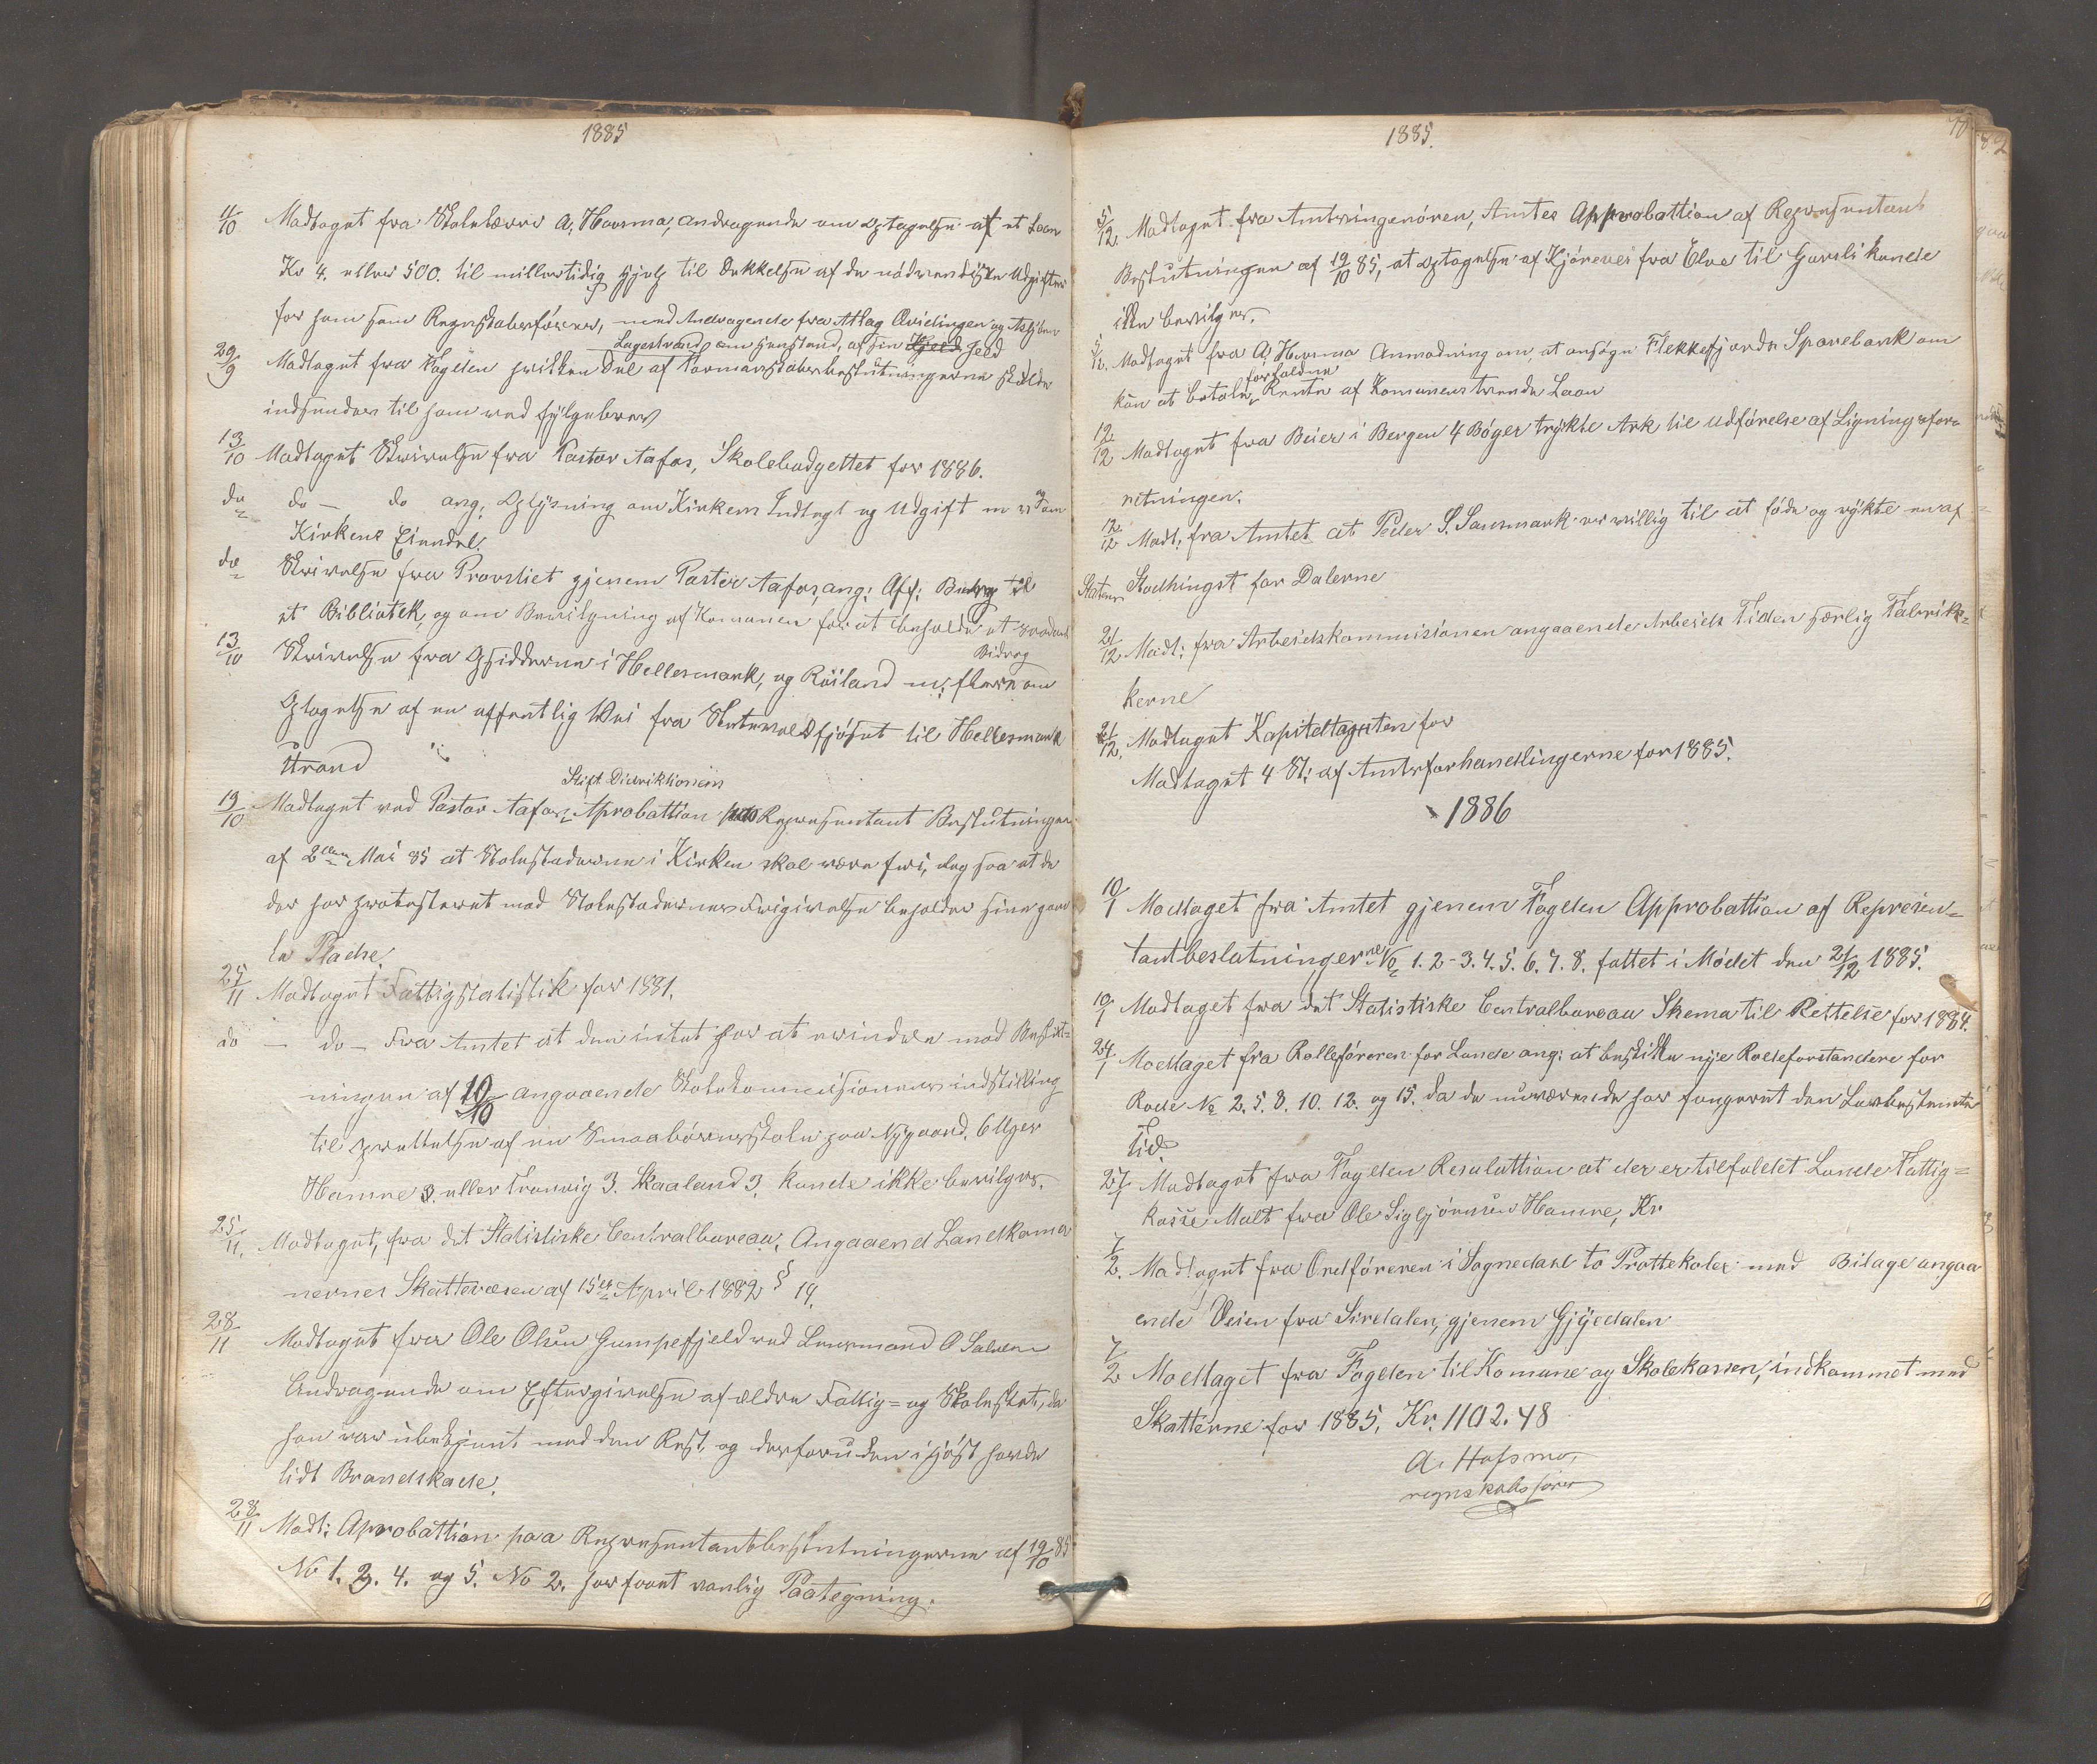 1885
11/10 Modtaget fra Skolelærer A. Hovsmo, andragende om Optagelse af et Laan
Kr 4. eller 500. til midlertidig Hjelp til Dækkelse af de nødvendigste Udgifter
for ham som Regnskabsfører, med Andragende fra Atlag Qvidingen og Asbjørn
Lagestrand om Henstand, af sin Gjeld
29/9 Modtaget fra Fogden hvilken Del af Formandskabsbeslutningerne skulde
indsendes til ham ved Følgebrev
13/10 Modtaget Skrivelse fra Pastor Aafos, Skolebudgettet for 1886.
do do — do ang. Oplysning om Kirkens Indtægt og Udgift og om
Kirkens Eiendel.
do Skrivelse fra Provstiet gjenem Pastor Aafos, ang: Aff: Bidrag til
et Bibliotek, og om Bevilgning af Komunen for at beholde et
Bidrag
13/10 Skrivelse fra Opsidderne i Hellesmark, og Röiland m: flere om
Optagelse af en offentlig Vei fra til Hellesmark
Strand
Stift Direktionen
19/10 Modtaget ved Pastor Aafos, Aprobattion paa Repræsentant Beslutningen
af 2den Mai 85 at Stolestaderne i Kirken skal være fri, dog saa at de
der har protesteret mod Stolestadernes Frigivelse beholder sine gam
le Pladse.
25/11 Modtaget Fattigstatistik for 1881.
do — do — Fra Amtet at den intet har at erindre mod Beslut=
ningen af 19/10 angaaende Skolekommisionens indstilling
til oprettelse af en Smaabörnsskole paa Nygaard. 6 Uger
Hamre 3. eller Tronvig 3. Skaaland 3. kunde ikke bevilges.
25/11. Modtaget, fra det Statistiske Centralbureau, Angaaend Landkomu
nernes Skattevæsen af 15de April 1882 § 19.
28/11 Modtaget fra Ole Olsen Gumpefjeld ved Lensmand O Salvesen
Andragende om Eftergivelse af ældre Fattig= og Skoleskat, da
han var ubekjent med den Rest, og desforuden i Høst havde
lidt Brandskade.
28/11 Modt: Aprobattion paa Repræsentantbeslutningerne af 19/10 85
No 1. 3. 4. og 5. No 2. har faaet vanlig Paategning.
1885.
5/12. Modtaget fra Amtsingeniören, Amtes Approbattion af Repræsentant
Beslutningen af 19/10 85, at Optagelse af Kjörevei fra Elve til Gursli kunde
ikke bevilges.
5/12. Modtaget fra A. Hovsmo Anmodning om, at ansøge Flekkefjords Sparebank om
kun at betale forfaldne Rente af Komunens trende Laan
12/12 Modtaget fra Beier i Bergen 4 Böger trykte Ark til Udförelse af Ligningsfor=
retningen.
12/12 Modt: fra Amtet at Peder S. Saurmark er villig til at föde og rygte en af
Statens Stodhingst for Dalerne
21/12 Modt: fra Arbeidskommisionen angaaende Arbeids Tiden særlig Fabrik=
kerne
21/12. Modtaget Kapiteltaxten for
Modtaget 4 St: af Amtsforhandlingerne for 1885.
1886
10/1 Modtaget fra Amtet gjenem Fogden Approbattion af Represen=
tantbeslutningerne No 1. 2 - 3. 4. 5. 6. 7. 8. fattet i Mödet den 21/12 1885.
10/1 Modtaget fra det Statistiske Centralbureau Skema til Rettelse for 1884.
24/1 Modtaget fra Rolleföreren for Lunde ang: at beskikke nye Rodeforstandere for
Rode No 2. 5. 8. 10. 12. og 15. da de nuværende har fungeret den Lovbestemte
Tid.
27/1 Modtaget fra Fogden Resolution at der er tilfaldet Lunde Fattig=
kasse Mult fra Ole Sigbjörnsen Hamre, Kr
7/2. Modtaget fra Ordföreren i Sognedahl to Prottekoler med Bilage angaa
ende Veien fra Sirdalen, gjenem Gyedalen
7/2 Modtaget fra Fogden til Komune og Skolekassen, indkommet med
Skatterne for 1885, Kr. 1102.48
A. Hofsmo,
regnskabsfører